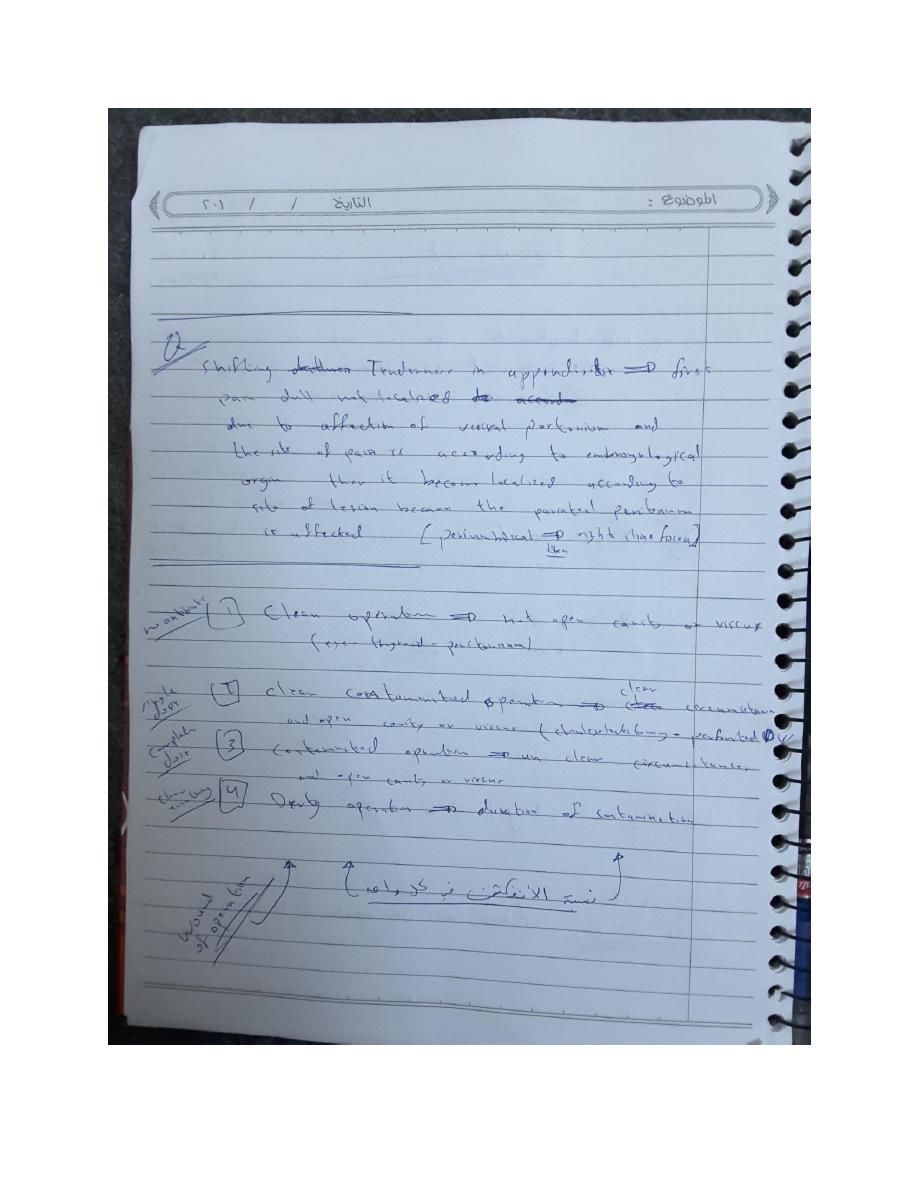 الموضوع :    التاريخ    /    /    ٢٠١
Q
Shifting Tenderness in appendisitis ⇒ first
pain dull not localized
due to affection of visiral peritonium and
the site of pain is according to embroyological
orgin then it become localized according to
site of lesion because the pariatal peritenum
is affected [periumbilical ⇒ right iliac fossa]
then
no antibiotic 1 Clean operation ⇒ not open cavity or viscus
( thyroid - peritonium)
single dose 2 clean contaminted operation ⇒ clean
and open cavity or viscus ( - perforated DU
complete dose 3 Contaminted operation ⇒ un clean circumstances
and open cavity or viscus
4 Dirty operation ⇒ duration of contamination
wound of operation
نسبة الانفكشن في كل واحد